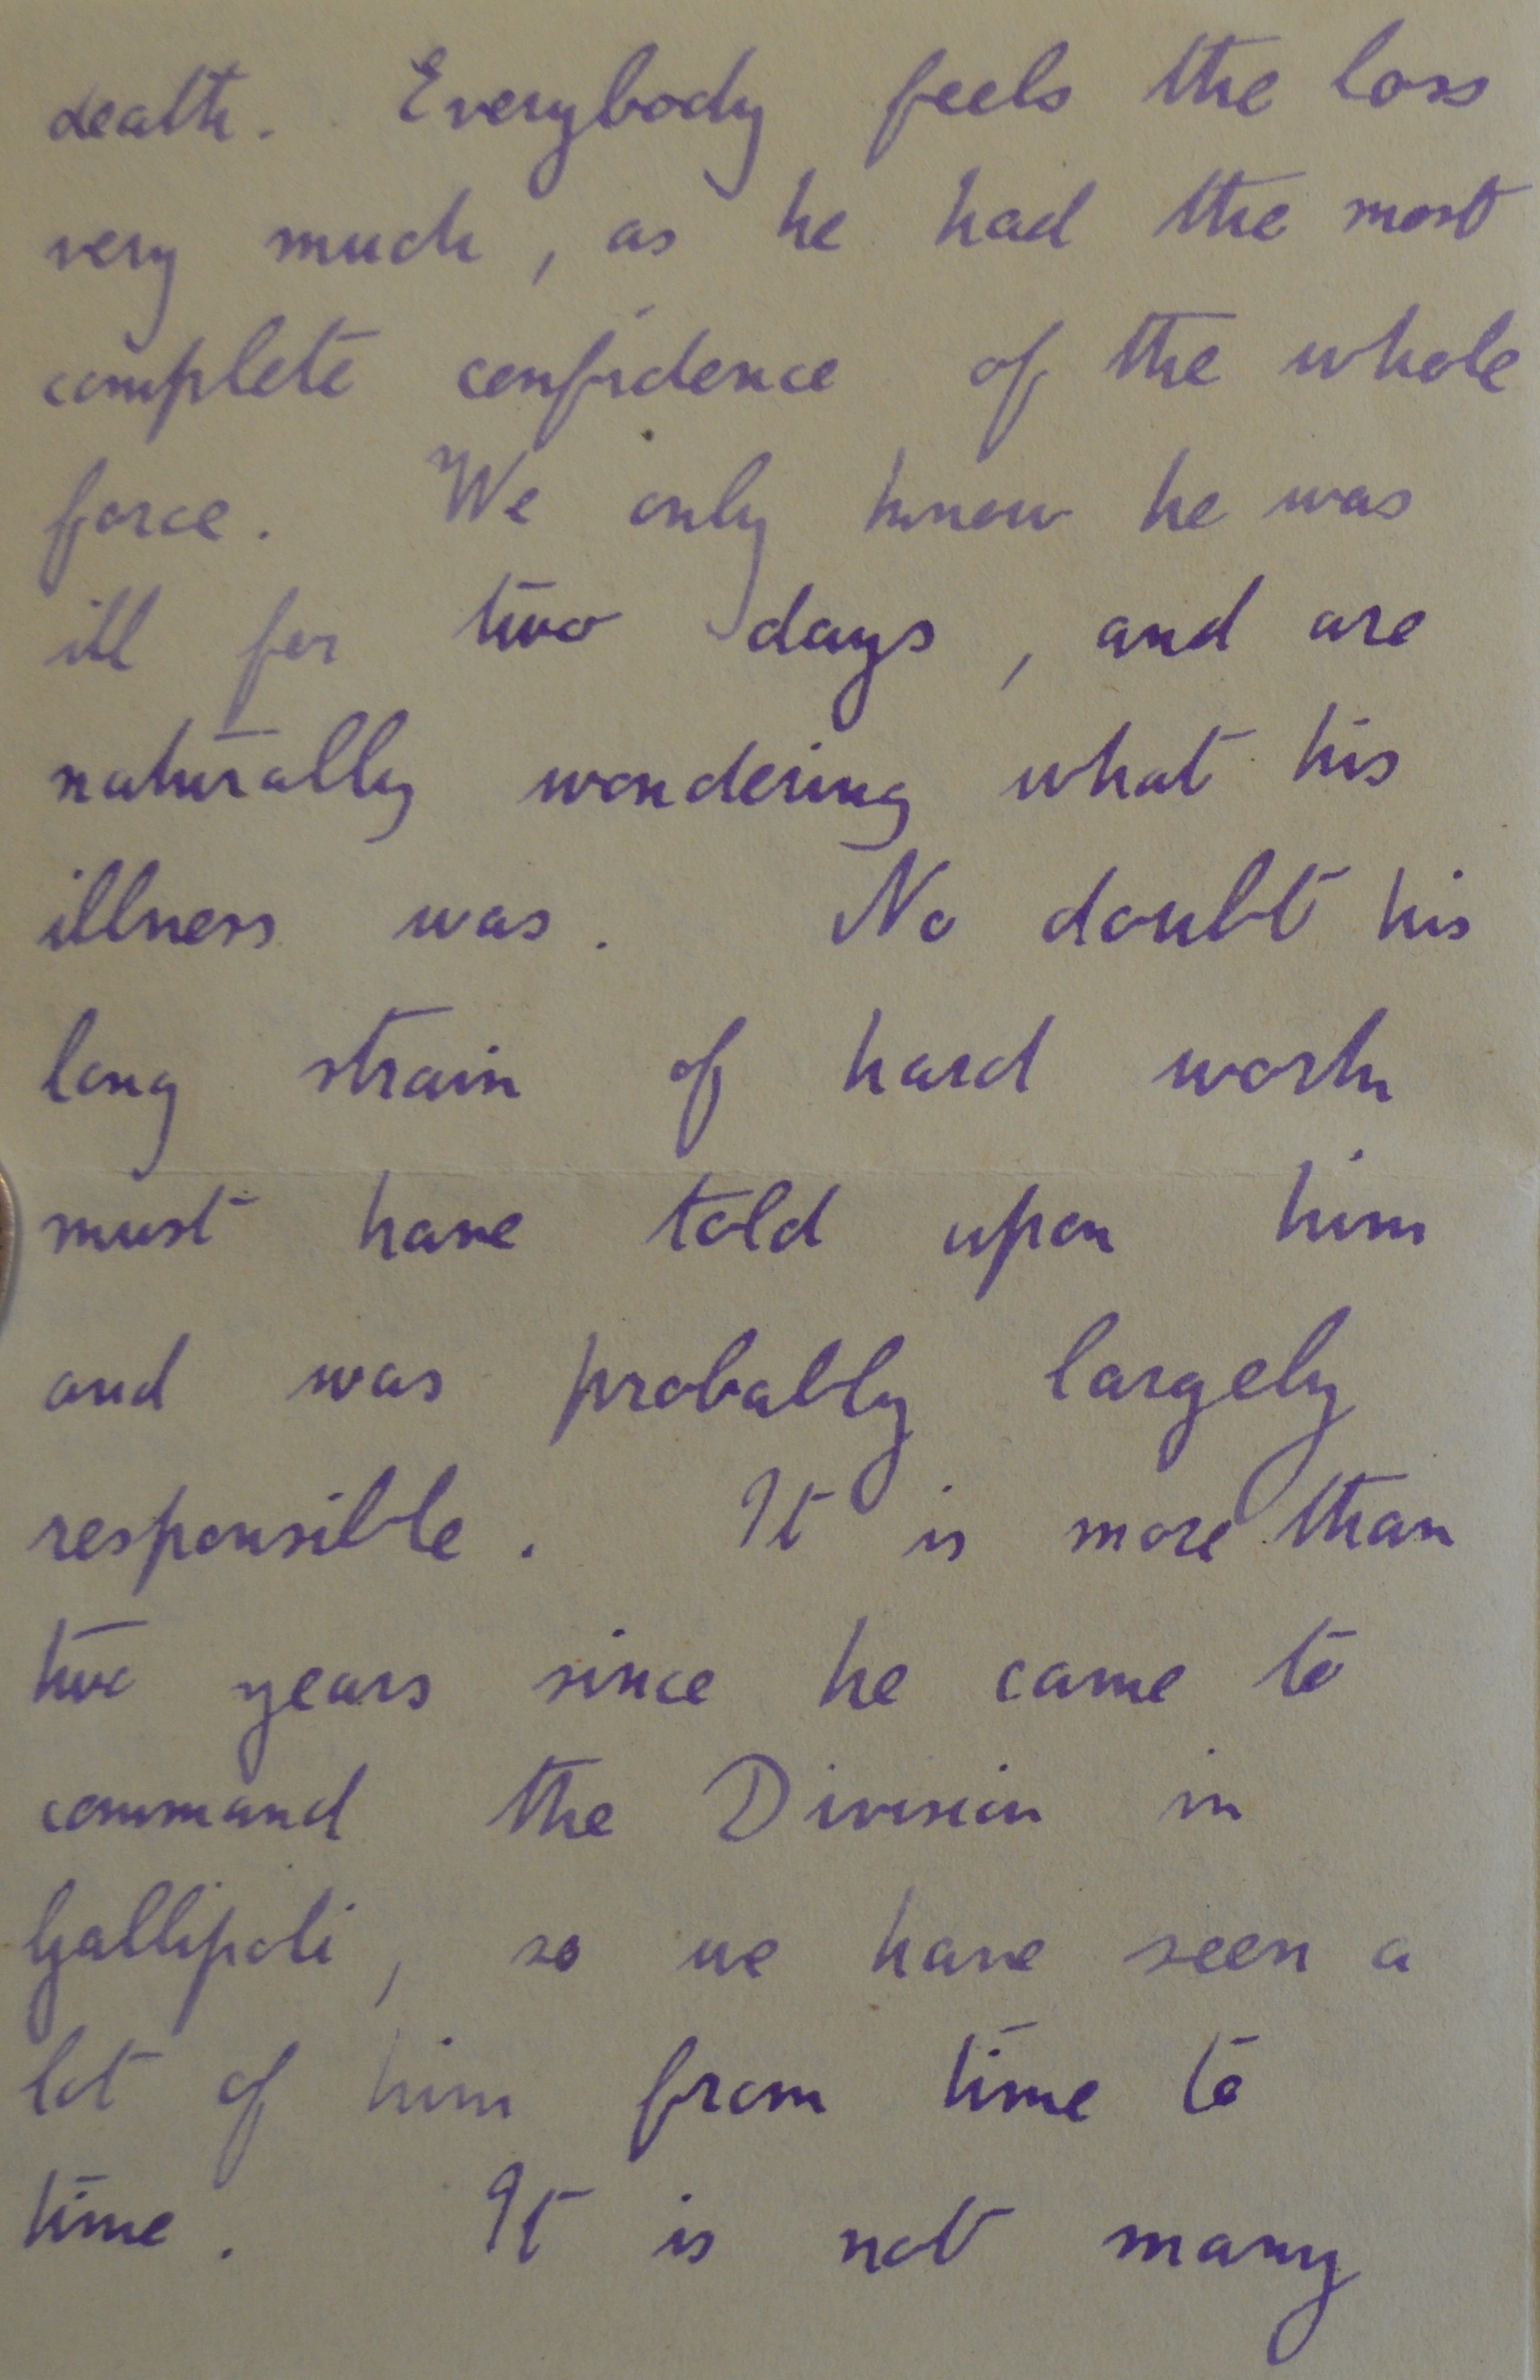 death. Everybody feels the loss
very much, as he had the most
complete confidence of the whole
force. We only knew he was
ill for two days, and are
naturally wondering what his
illness was. No doubt his
long strain of hard work
must have told upon him
and was probably largely
responsible. It is more than
two years since he came to
command the Division in
Gallipoli, so we have seen a
lot of him from time to
time. It is not many